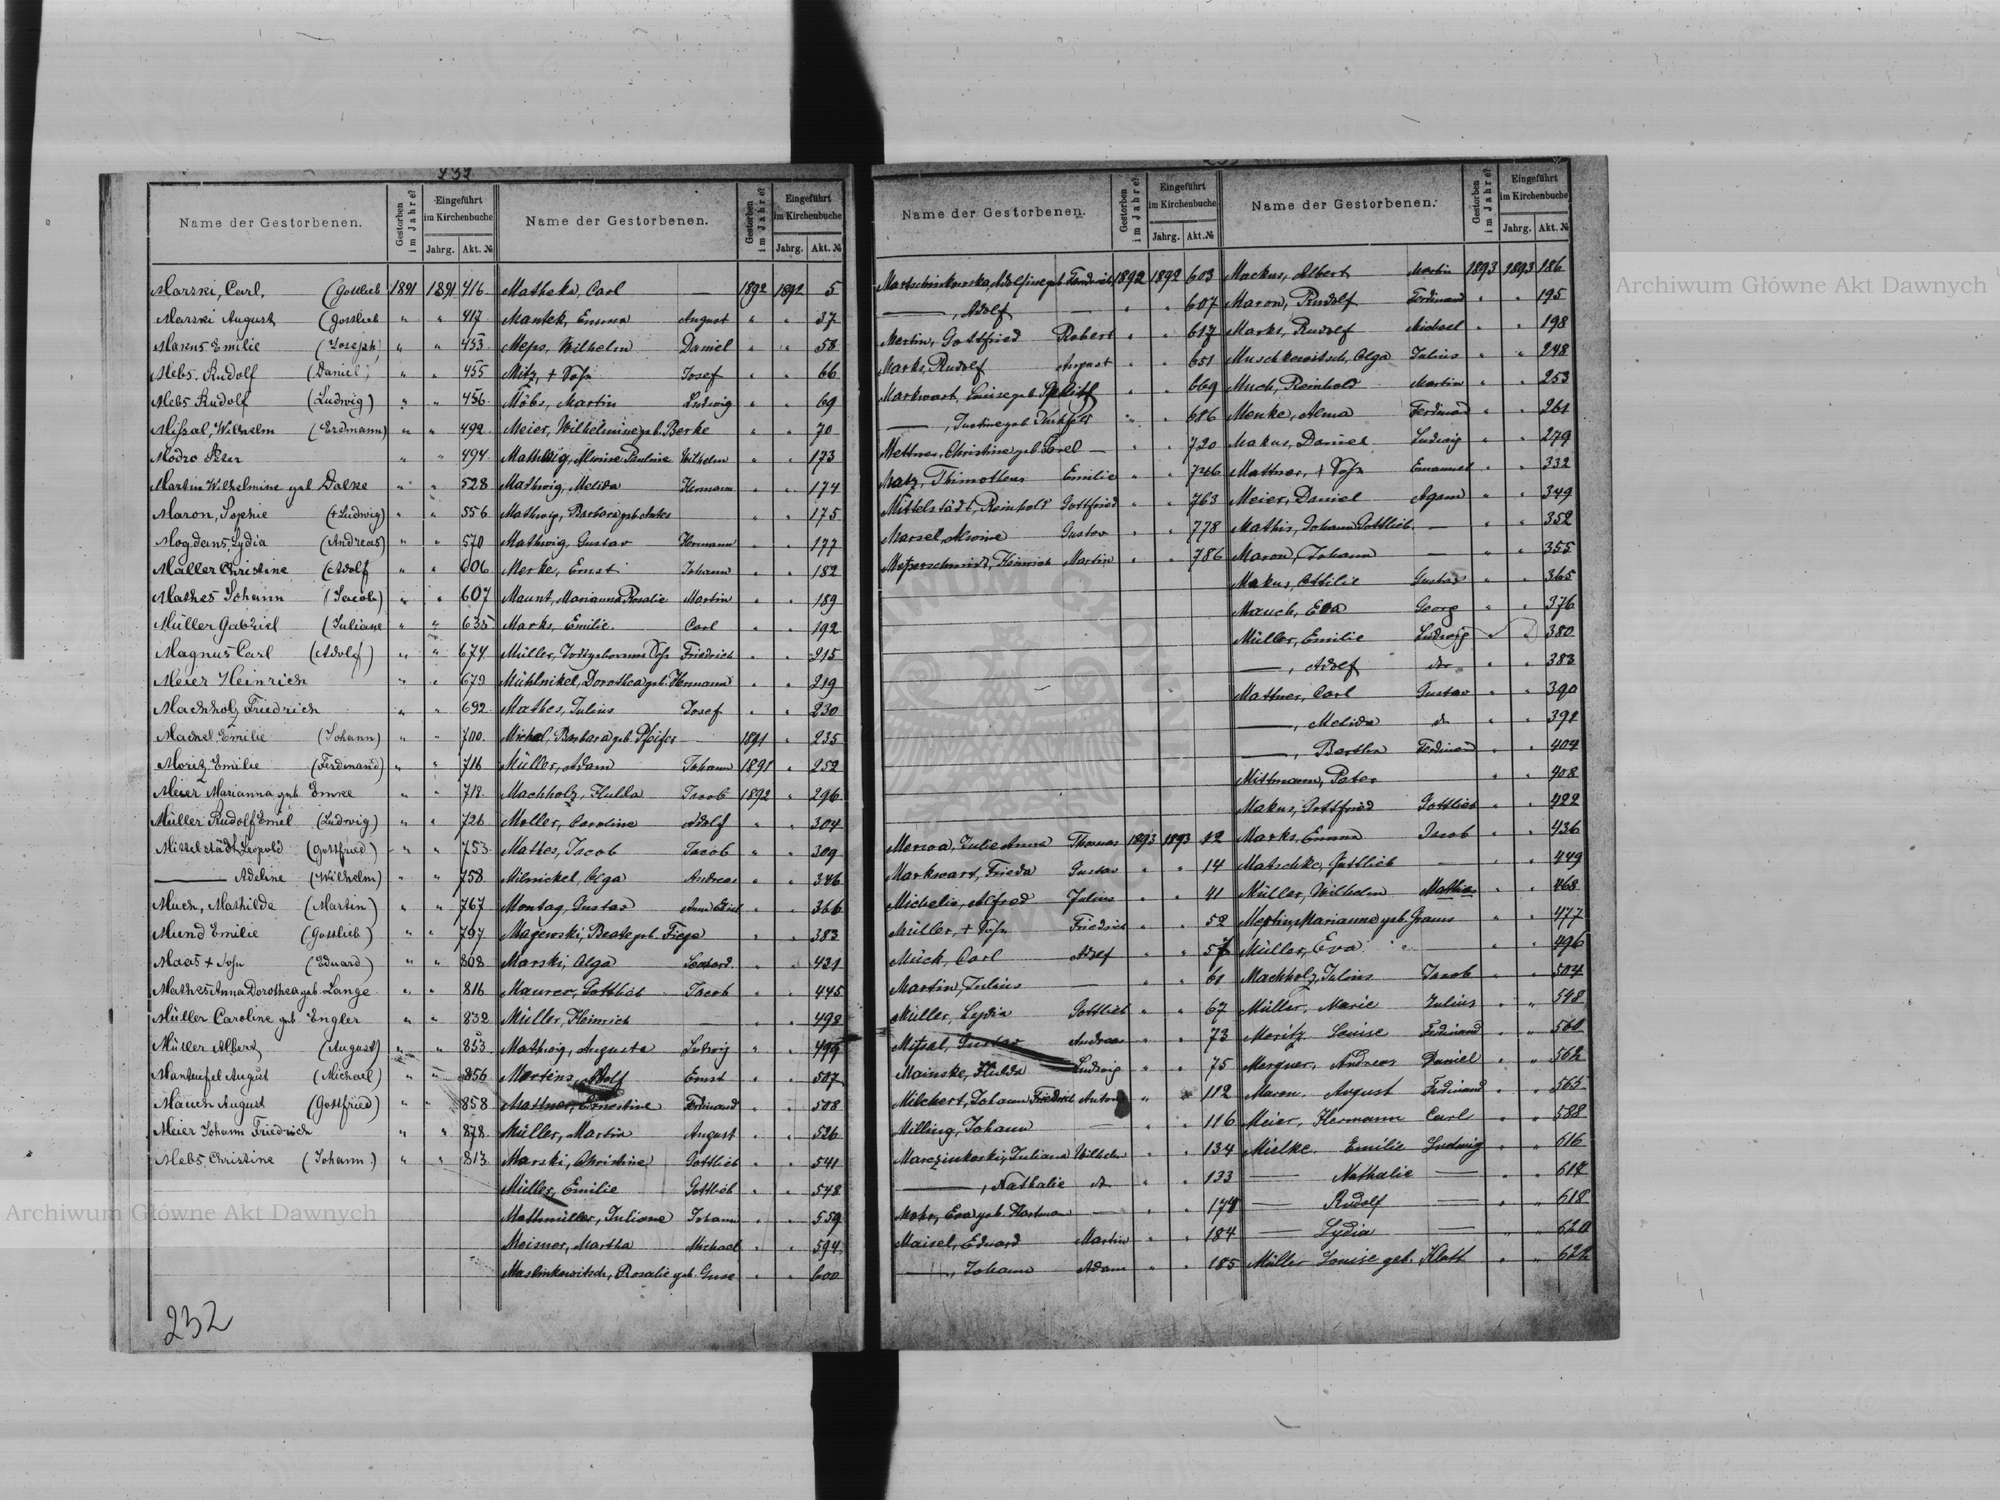 232
Name der Gestorbenen. Gestorben im Jahre? Eingeführt im Kirchenbuche Jahrg. Akt. №
Marski, Carl, (Gottlieb 1891 1891 416
Marski August (Gottlieb " " 417
Makus Emilie (Joseph) " " 453
Mebs, Rudolf (Daniel) " " 455
Mebs Rudolf (Ludwig) " " 456
Missal, Wilhelm (Erdmann) " " 492
Modro Peter " " 494
Martin Wilhelmine geb Dalke " " 528
Maron, Sophie (+ Ludwig) " " 556
Mogdans, Lydia (Andreas) " " 570
Müller Christine (Adolf " " 606
Mathes Johann (Jacob) " " 607
Müller Gabriel (Juliane " " 635
Magnus Carl (Adolf) " " 674
Meier Heinrich " " 679
Machholz Friedrich " " 692
Emilie (Johann) " " 700
Moritz Emilie (Ferdinand) " " 716
Meier Marianna geb. Emke " " 718
Müller Rudolf Emil (Ludwig) " " 726
Mittelstädt Leopold (Gottfried) " " 753
——— Adeline (Wilhelm) " " 758
Much, Mathilde (Martin) " " 767
Mund Emilie (Gottlieb) " " 797
Maas + Sohn (Eduard) " " 808
Mathes Anna Dorothea geb. Lange " " 816
Müller Caroline geb Engler " " 832
Müller Albert (August) " " 853
Manteufel August (Michael) " " 856
Mauch August (Gottfried) " " 858
Meier Johann Friedrich " " 878
Mebs, Christine (Johann) " " 813
232
Name der Gestorbenen. Gestorben im Jahre? Eingeführt im Kirchenbuche Jahrg. Akt. №
Matheka, Carl — 1892 1892 5
Mantek, Emma August " " 37
Meps, Wilhelm Daniel " " 58
Mitz, + Sohn Josef " " 66
Möbs, Martin Ludwig " " 69
Meier, Wilhelmine geb. Berke " " 70
Mathwig, Alwine Pauline Wilhelm " " 173
Mathwig, Melida Hermann " " 174
Mathwig, Barbara geb. " " 175
Mathwig, Gustav Hermann " " 177
Merke, Ernst Johann " " 182
Maunt, Marianna Rosalie Martin " " 189
Marks, Emilie Carl " " 192
Müller, Todtgeborener Sohn Friedrich " " 215
Mühlnikel, Dorothea geb. Hermann " " 219
Mathes, Julius Josef " " 230
Michel, Barbara geb. Pfeifer 1891 " 235
Müller, Adam Johann 1891 " 252
Machholz, Hulda Jacob 1892 " 296
Moller, Caroline Adolf " " 304
Mathes, Jacob Jacob " " 309
Milnickel, Olga Andreas " " 346
Montag, Gustav " " 366
Majewski, Beate geb. " " 383
Marski, Olga " " 431
Maurer, Gottlieb Jacob " " 445
Müller, Heinrich — " " 498
Mathwig, Auguste Ludwig " " 499
Martins, Adolf Ernst " " 507
Mattner, Ernestine Ferdinand " " 508
Müller, Martin August " " 526
Marski, Christine Gottlieb " " 541
Müller, Emilie Gottlieb " " 548
Mathmüller, Juliane Johann " " 559
Meisner, Martha Michael " " 594
Maslinkowitsch, Rosalie geb. Guse " " 600
Name der Gestorbenen. Gestorben im Jahre? Eingeführt im Kirchenbuche Jahrg. Akt. №
1892 1892 603
———, Adolf — " " 607
Mertin, Gottfried Robert " " 617
Marks, Rudolf August " " 651
Markwart, Luise geb. " " 669
———, Justine geb. " " 686
Mettner, Christine geb. — " " 720
Matz, Thimotheus Emilie " " 746
Mittelstädt, Reinhold Gottfried " " 763
Marsel, Alwine Gustav " " 778
Messerschmidt, Heinrich Martin " " 786
Julie Anna Thomas 1893 1893 12
Markwart, Frieda Gustav " " 14
Michelis, Alfred Julius " " 41
Müller, + Sohn Friedrich " " 52
Mück, Carl Adolf " " 57
Martin, Julius — " " 61
Müller, Lydia Gottlieb " " 67
Missal, Gustav Andreas " " 73
Mainske, Hulda Ludwig " " 75
Milchert, Johann Friedrich Anton " " 112
Milling, Johann — " " 116
Juliana Wilhelm " " 134
———, Nathalie do " " 133
Mohr, Eva geb. Hartman — " " 174
Maisel, Eduard Martin " " 184
———, Johann Adam " " 185
Name der Gestorbenen. Gestorben im Jahre? Eingeführt im Kirchenbuche Jahrg. Akt. №
Mackus, Albert Martin 1893 1893 186
Maron, Rudolf Ferdinand " " 195
Marks, Rudolf Michael " " 198
Muschkewitsch, Olga Julius " " 248
Much, Reinhold Martin " " 253
Menke, Alma Ferdinand " " 261
Makus, Daniel Ludwig " " 279
Mattner, + Sohn Emanuel " " 332
Meier, Daniel " " 349
Mathis, Johann Gottlieb — " " 352
Maron, Johann — " " 355
Makus, Ottilie Gustav " " 365
Mauch, Eva Georg " " 376
Müller, Emilie Ludwig " " 380
———, Adolf do " " 383
Mattner, Carl Gustav " " 390
———, Melida do " " 391
———, Bertha Ferdinand " " 404
Mittmann, Peter " " 408
Makus, Gottfried Gottlieb " " 422
Marks, Emma Jacob " " 436
Matschke, Gottlieb — " " 449
Müller, Wilhelm Mathias " " 468
Marianna geb. Grams " " 477
Müller, Eva — " " 496
Machholz, Julius Jacob " " 504
Müller, Marie Julius " " 548
Moritz, Louise Ferdinand " " 560
Mergner, Andreas Daniel " " 562
Maron, August Ferdinand " " 565
Meier, Hermann Carl " " 588
Mielke, Emilie Ludwig " " 616
—— Nathalie —— " " 617
—— Rudolf —— " " 618
—— Lydia —— " " 620
Müller Louise geb. Klatt " " 622
Archiwum Główne Akt Dawnych
Archiwum Główne Akt Dawnych